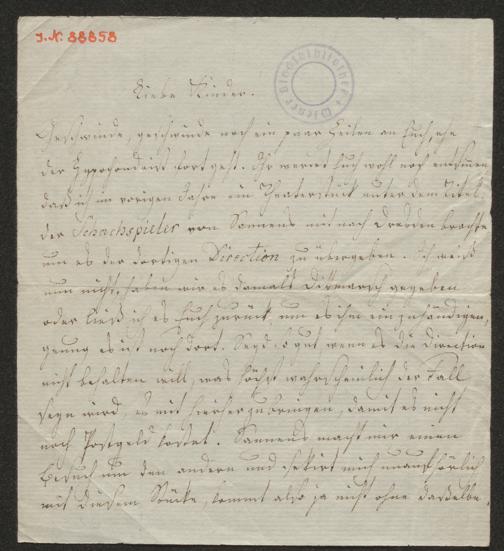 J.N. 38853
Wiener Stadtbibliothek
Liebe Kinder.
Geschwinde, geschwinde noch ein paar Zeilen an Euch, ehe
der Hypochondrist fortgeht. Ihr werdet Euch wohl noch entsinnen
daß ich im vorigen Jahre ein Theaterstück unter dem Titel
der Schachspieler von Sannens mit nach Dresden brachte
um es der dortigen Direction zu übergeben. Ich weiß
nun nicht, haben wir es damals Dittmarsch gegeben
oder ließ ich es Euch zurück, um es ihm einzuhändigen,
genug es ist noch dort. Seyd so gut wenn es die Direction
nicht behalten will, was höchst wahrscheinlich der Fall
seyn wird, es mit hierherzubringen, damit es nicht
noch Postgeld kostet. Sannens macht mir einen
Besuch um den andern und sekirt mich unaufhörlich
mit diesem Stücke, kommt also ja nicht ohne dasselbe.